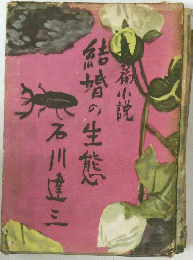 長篇小説
結婚の生態
石川達三